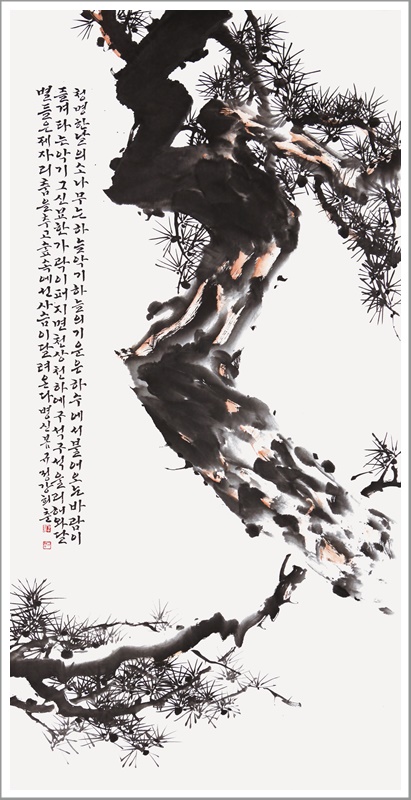 청명한날의소나무는하늘악기하늘의기운은하수에서불어오는바람이
즐겨타는악기그신묘한가락이퍼지면천상천하에구석구석울리어와달
별들은제자리춤을추고숲속에선사슴이달려온다병신봄